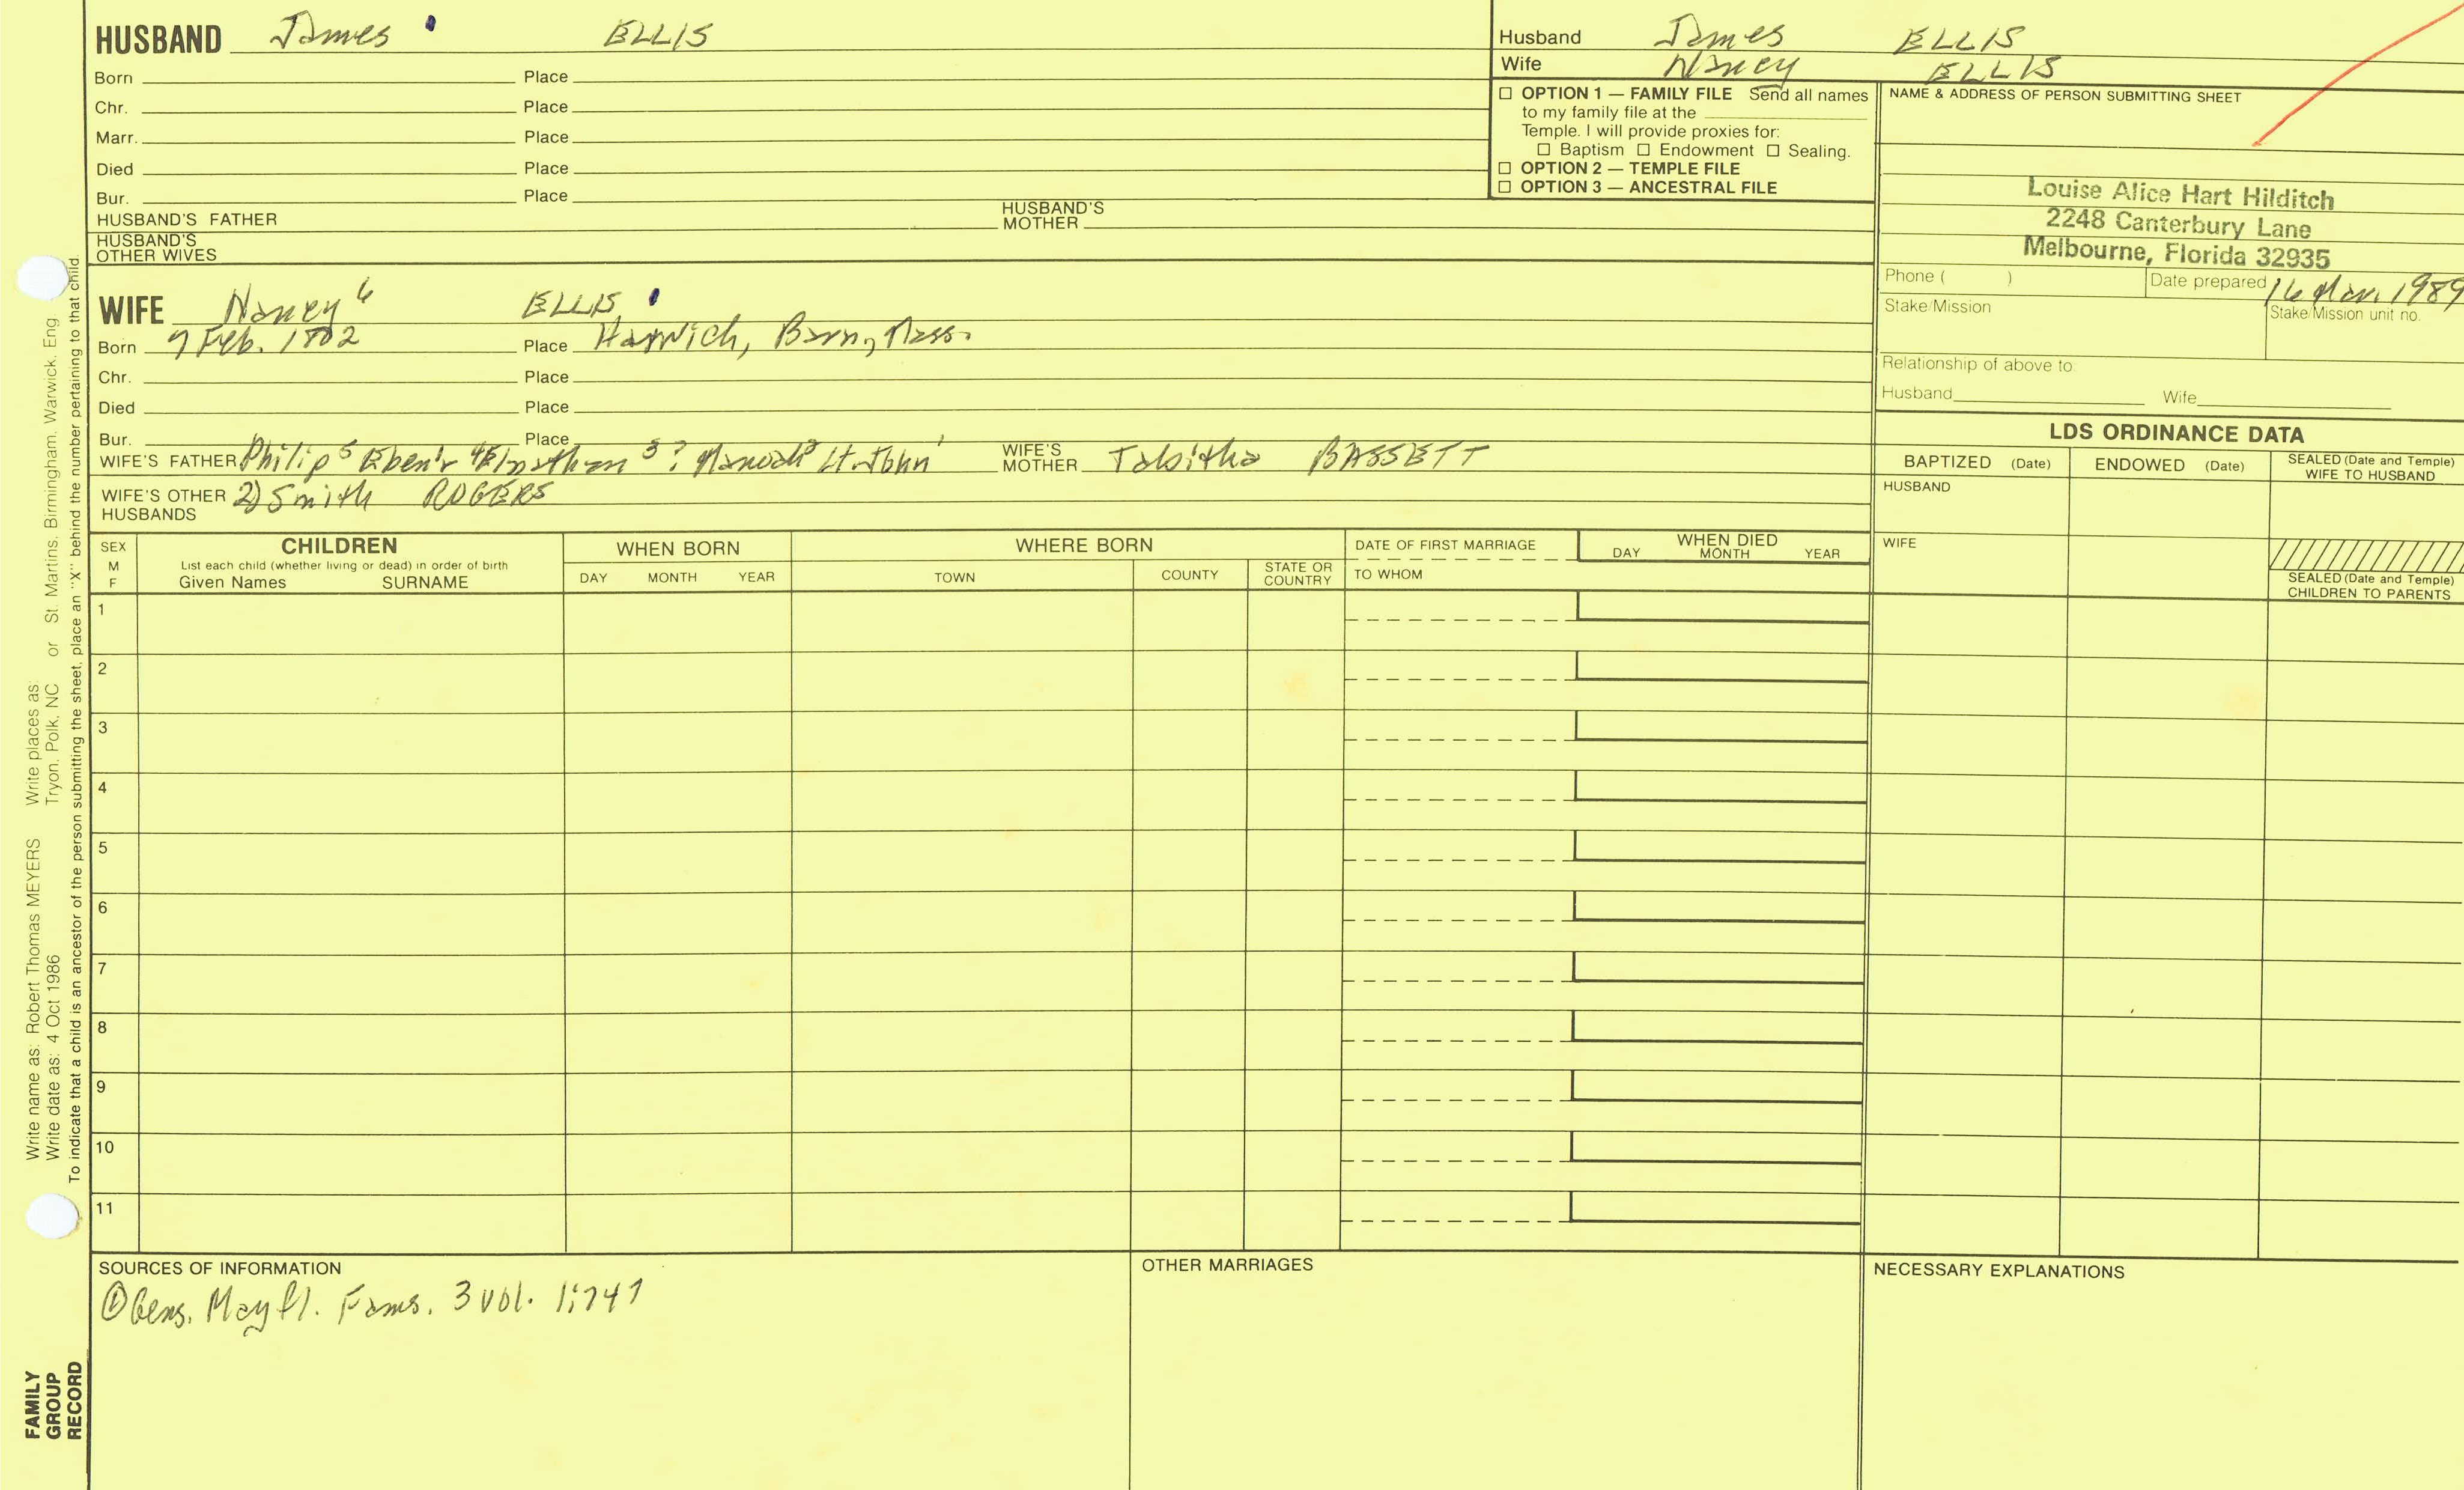 HUSBAND James ELLIS
Born Place
Chr. Place
Marr. Place
Died Place
Bur. Place
HUSBAND'S FATHER HUSBAND'S MOTHER
HUSBAND'S OTHER WIVES
Husband James ELLIS
Wife Nancy ELLIS
☐ OPTION 1 — FAMILY FILE Send all names
to my family file at the
Temple. I will provide proxies for:
☐ Baptism ☐ Endowment ☐ Sealing.
☐ OPTION 2 — TEMPLE FILE
☐ OPTION 3 — ANCESTRAL FILE
NAME & ADDRESS OF PERSON SUBMITTING SHEET
Louise Alice Hart Hilditch
2248 Canterbury Lane
Melbourne, Florida 32935
Phone ( ) Date prepared 16 Mar. 1989
Stake/Mission Stake/Mission unit no.
Relationship of above to:
Husband Wife
WIFE Nancy 6 ELLIS
Born 7 Feb. 1802 Place Harwich, Barn, Mass.
Chr. Place
Died Place
Bur. Place
WIFE'S FATHER Philip 5 Eben'r 4 Elnathan 3? 2 Lt. John 1 WIFE'S MOTHER Tabitha BASSETT
WIFE'S OTHER HUSBANDS 2) Smith ROGERS
LDS ORDINANCE DATA
BAPTIZED (Date) ENDOWED (Date) SEALED (Date and Temple) WIFE TO HUSBAND
HUSBAND
WIFE
SEALED (Date and Temple) CHILDREN TO PARENTS
SEX M F
CHILDREN
List each child (whether living or dead) in order of birth
Given Names SURNAME
WHEN BORN
DAY MONTH YEAR
WHERE BORN
TOWN COUNTY STATE OR COUNTRY
DATE OF FIRST MARRIAGE
TO WHOM
WHEN DIED
DAY MONTH YEAR
1
2
3
4
5
6
7
8
9
10
11
SOURCES OF INFORMATION
① Gens. Mayfl. Fams. 3 vol. 1:747
OTHER MARRIAGES
NECESSARY EXPLANATIONS
Write name as: Robert Thomas MEYERS Write places as: Tryon, Polk, NC or St. Martins, Birmingham, Warwick, Eng
Write date as: 4 Oct 1986
To indicate that a child is an ancestor of the person submitting the sheet, place an "X" behind the number pertaining to that child.
FAMILY
GROUP
RECORD